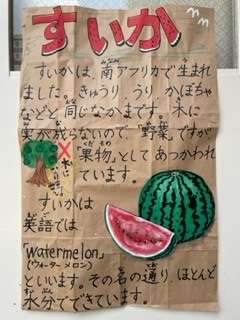 すいか
すいかは、南アフリカで生まれ
ました。きゅうり、うり、かぼちゃ
などと同じなかまです。木に
実が成らないので「野菜」ですが
「果物」としてあつかわれ
ています。
すいかは
英語では
「watermelon」
(ウォーターメロン)
といいます。その名の通り、ほとんど
水分でできています。